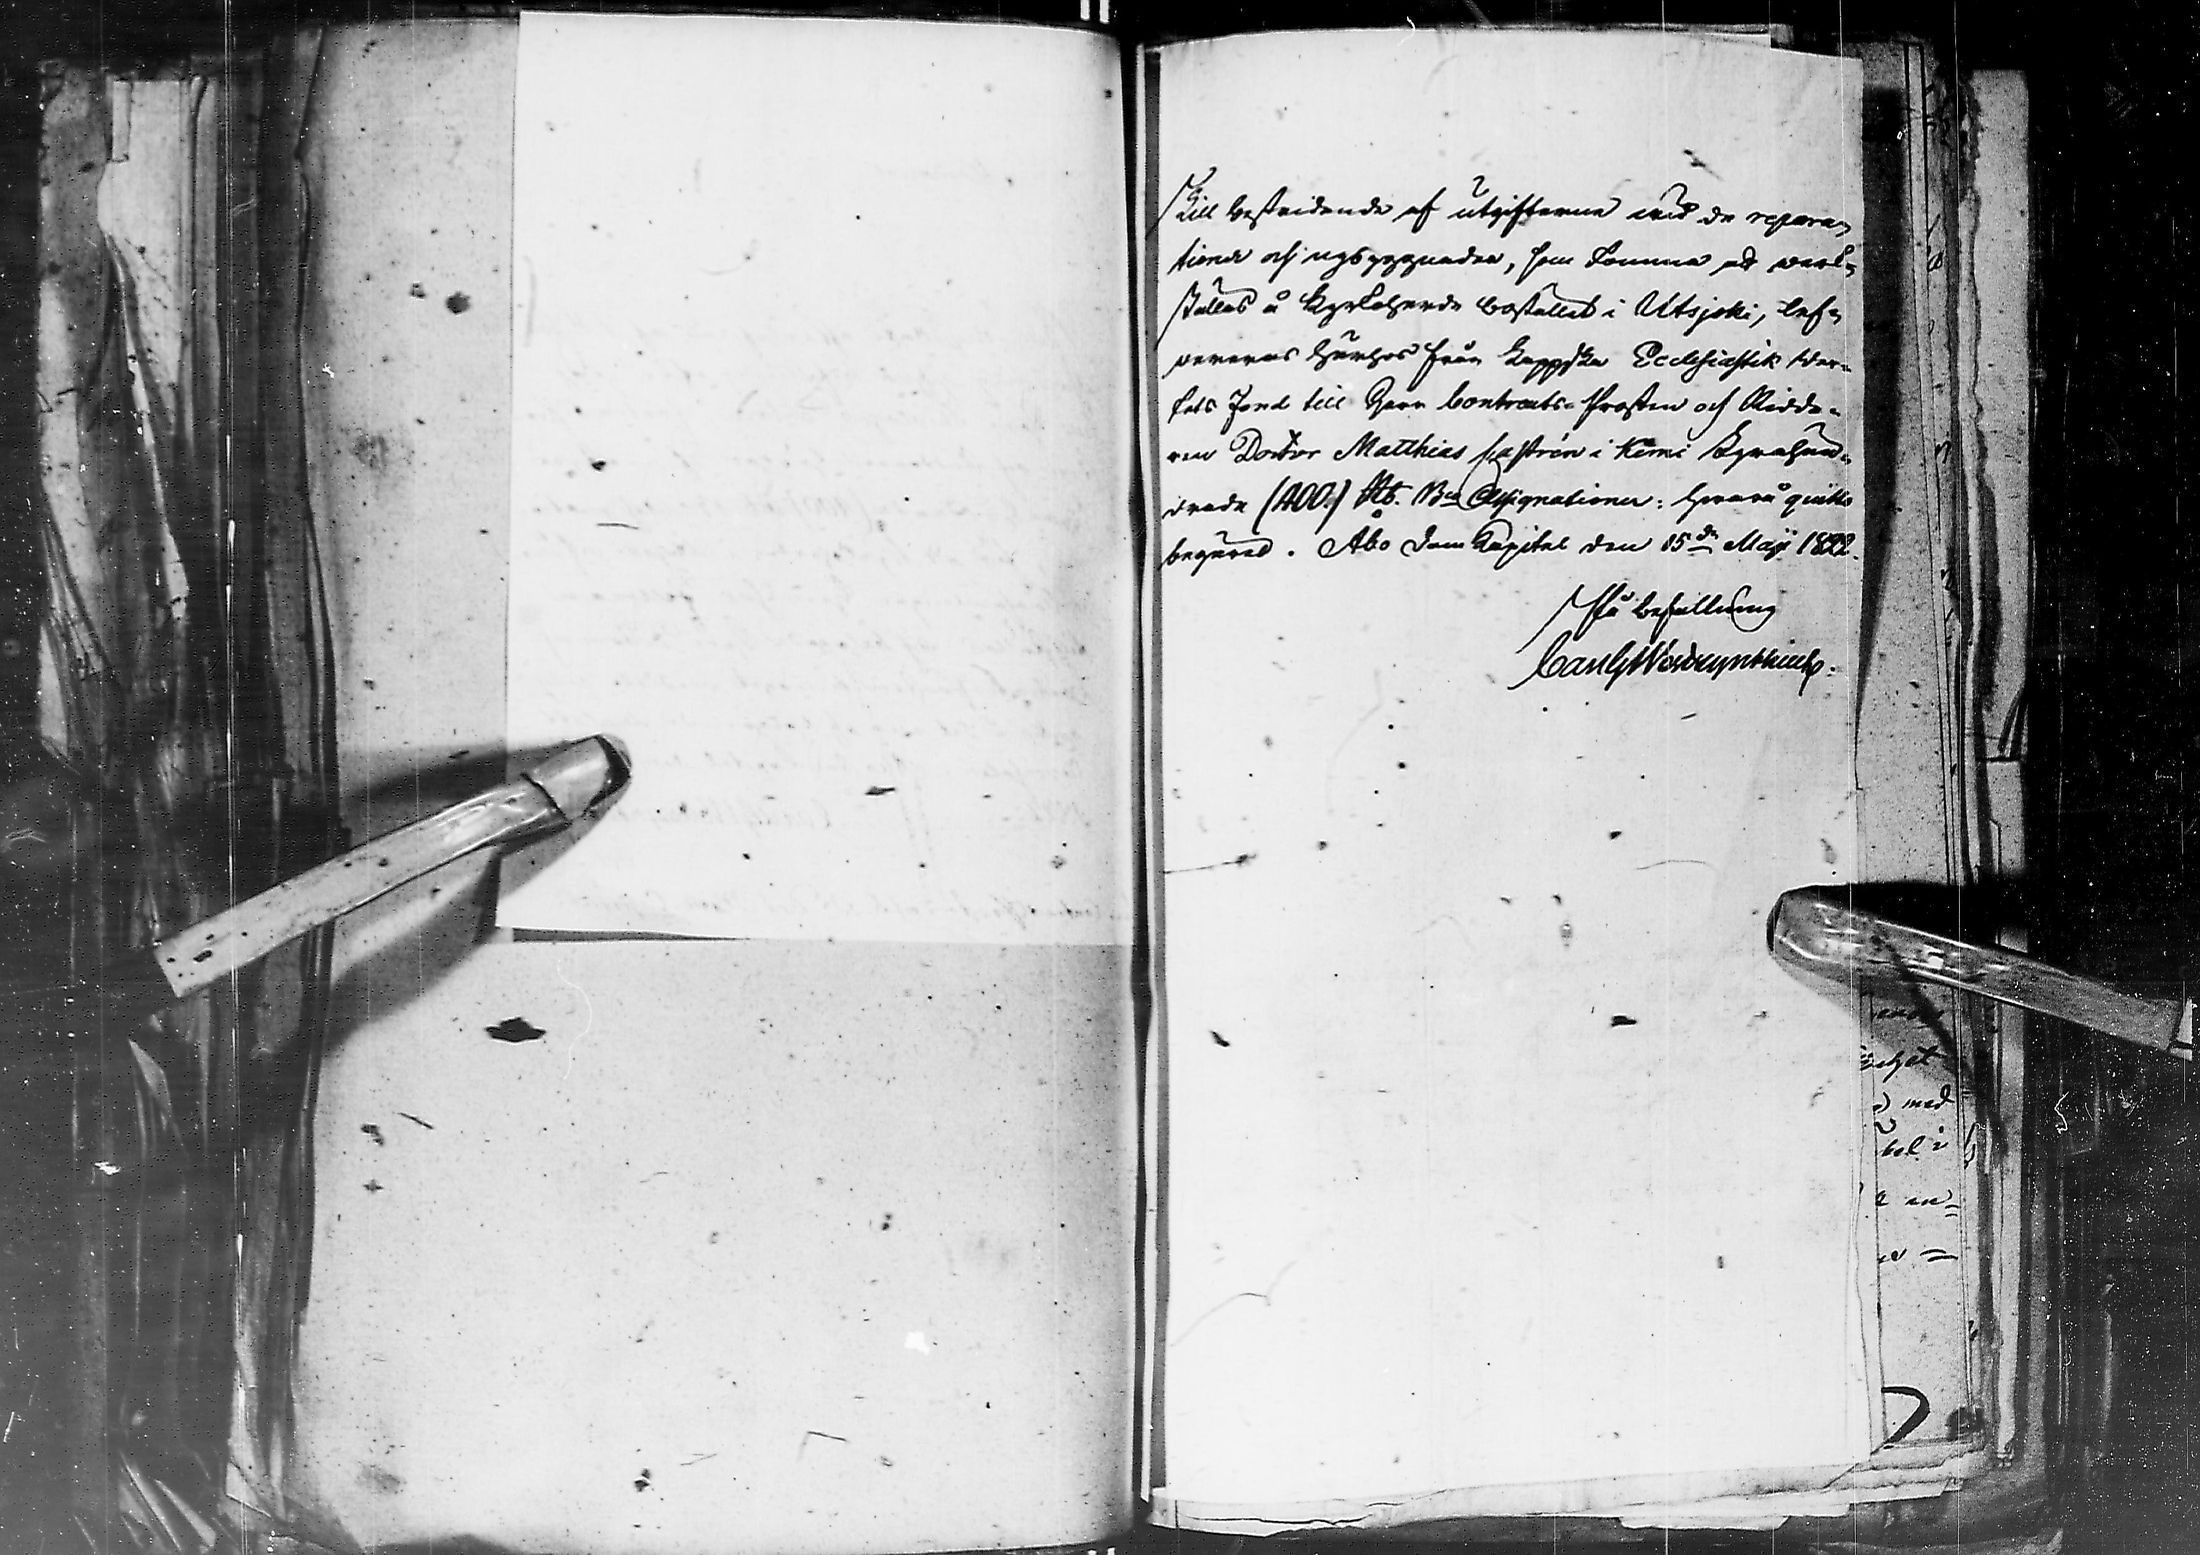 Till bestridande af utgifterne wid de repara-
tioner och nybyggnader, som komma att werk-
ställas å Kyrkoherde bostället i Utsjoki, lef-
vereras härhos från Lappska Ecclesiastik Wer-
kets Fond till Herr Contracts-Prosten och Ridda-
ren Doctor Matthias Castrén i Kemi Fyrahun-
drade (400.) Rb. Bco Assignationer: hwarå quitto
begäres. Åbo DomKapitel den 15de Maji 1822.
På befallning
endes
med
bel i